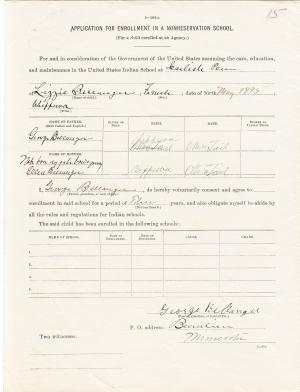 5—192 a.
15
APPLICATION FOR ENROLLMENT IN A NONRESERVATION SCHOOL.
(For a child enrolled at an Agency.)
For and in consideration of the Government of the United States assuming the care, education,
and maintenance in the United States Indian School at Carlisle Penn
Lizzie Bellanger, Female, date of birth May 1895
(Name of child.)
Chippewa
(Tribe.)
NAME OF FATHER. (Both Indian and English.) TRIBE. BAND.
George Bellanger Chippewa Otter Tail
NAME OF MOTHER.
Ellen Bellanger Chippewa Otter Tail
I, George Bellanger, do hereby voluntarily consent and agree to
(Parent, guardian, or next of kin.)
enrollment in said school for a period of Three years, and also obligate myself to abide by
(Not less than 3.)
all the rules and regulations for Indian schools.
The said child has been enrolled in the following schools:
NAME OF SCHOOL. DATE OF ENROLLMENT. DATE OF DISCHARGE. CAUSE. GRADE.
1.
2.
3.
4.
George Bellanger
(Parent, guardian, or next of kin.)
P. O. address: Beaulieu
Minnesota
Two witnesses: